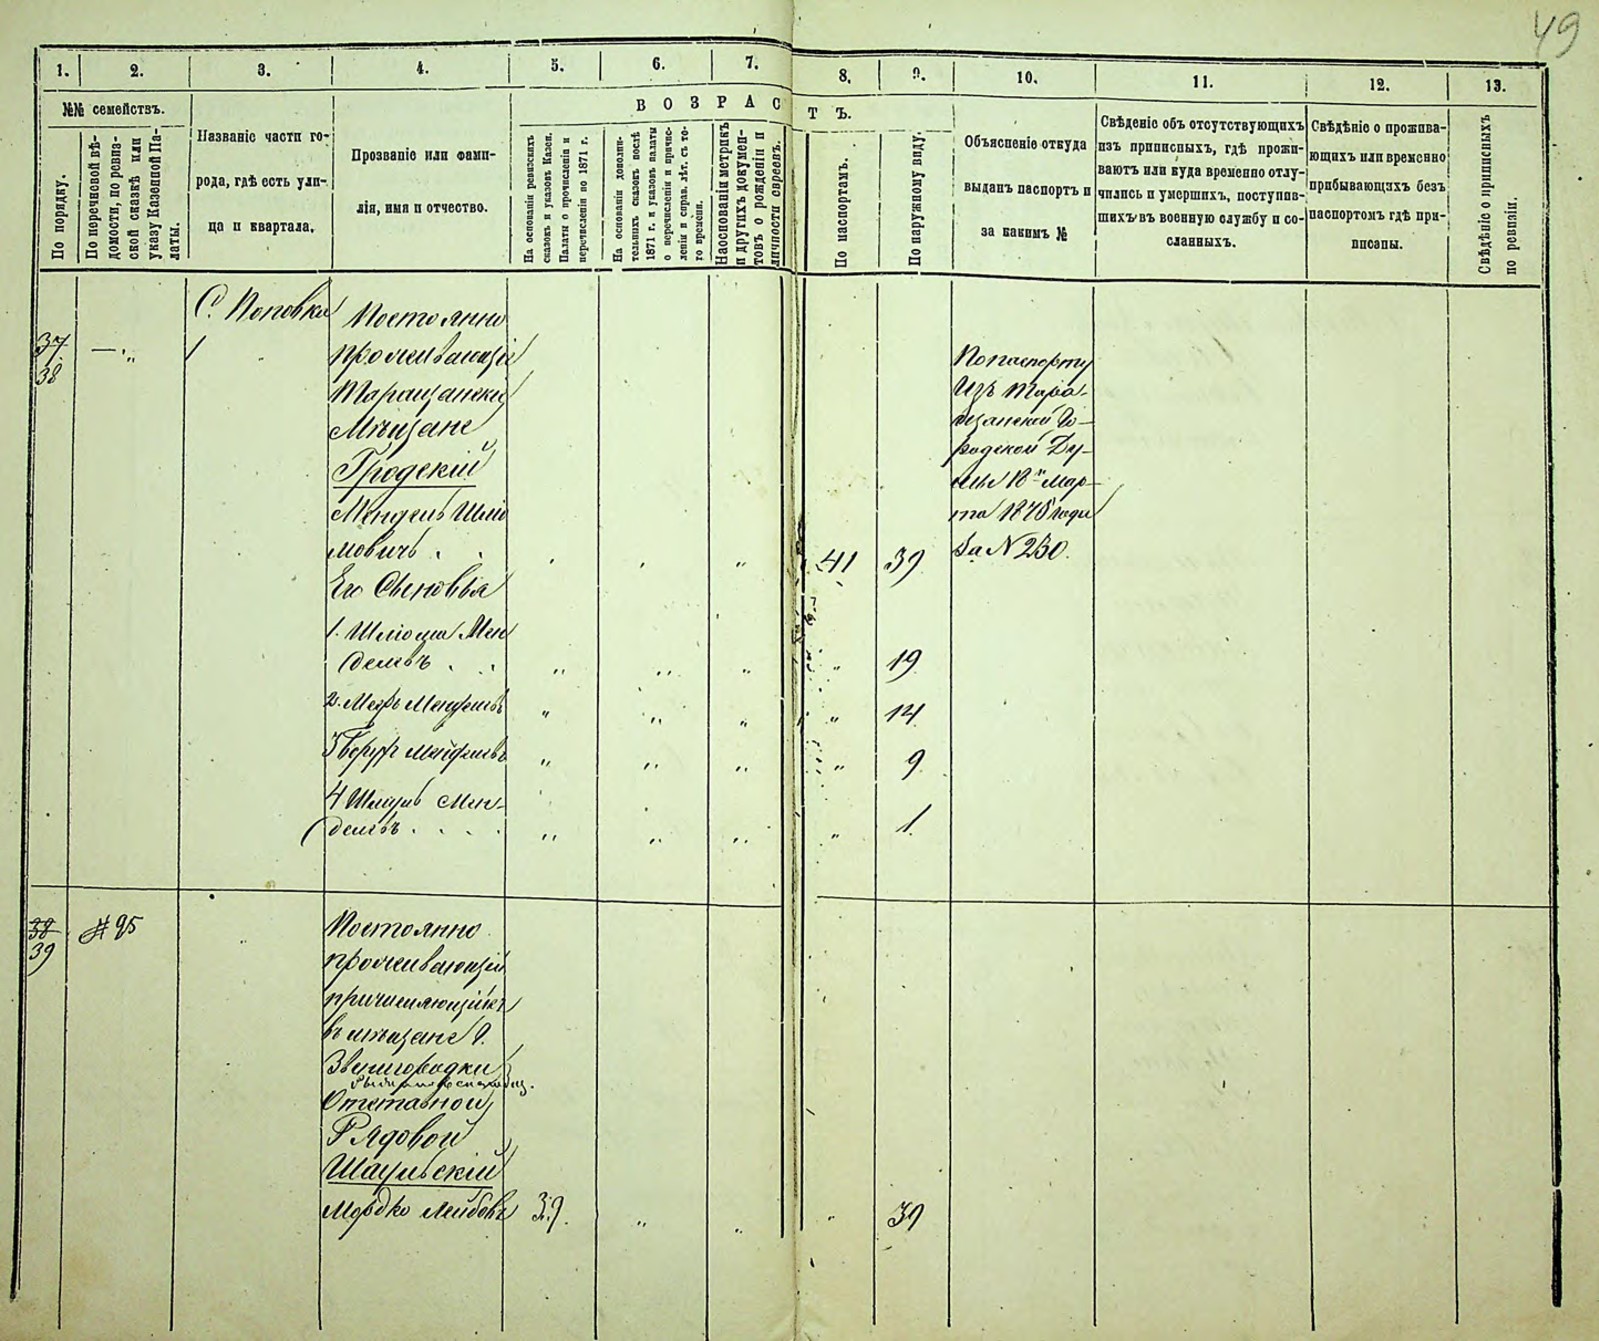 49
1. 2. 3. 4. 5. 6. 7. 8. 9. 10. 11. 12. 13.
№№ семействъ.
По порядку.
По перечневой вѣ-
домости, по ревиз-
ской сказкѣ или
указу Казенной Па-
латы.
Названіе части го-
рода, гдѣ есть ули-
ца и квартала.
Прозваніе или фами-
лія, имя и отчество.
ВОЗРАСТЪ.
На основаніи ревизскихъ
сказокъ и указовъ Казен.
Палаты о причисленіи и
перечисленіи по 1871 г.
На основаніи дополни-
тельныхъ сказокъ послѣ
1871 г. и указовъ палаты
о перечисленіи и причис-
леніи и справ. лѣт. съ то-
го времени.
На основаніи метрикъ
и другихъ докумен-
товъ о рожденіи и
личности евреевъ.
По паспортамъ.
По наружному виду.
Объясненіе откуда
выданъ паспортъ и
за какимъ №
Свѣденіе объ отсутствующихъ
изъ приписныхъ, гдѣ прожи-
ваютъ или куда временно отлу-
чились и умершихъ, поступив-
шихъ въ военную службу и со-
сланныхъ.
Свѣдѣніе о прожива-
ющихъ или временно
прибывающихъ безъ
паспортомъ гдѣ при-
писаны.
Свѣдѣніе о приписныхъ
по ревизіи.
37
38
— „
С. Поповка
1
Постоянно
проживающіе
Таращанскіе
Мѣщане
Гродскій
Мендель Шлио
мовичъ . . „ 41 39
Его Сыновья
1. Шліома Мен
делевъ . . „ „ „ „ 19
2. Меер Менделевъ „ „ „ „ 14
3 Борух Менделевъ „ „ „ „ 9
4 Шмуль Мен-
делевъ . . . . „ „ „ „ 1
По паспорту
Изъ Тара-
щанской Го-
родской Ду-
мы 18 Мар-
та 1875 года
За N 230.
38
39
# 95
Постоянно
проживающій
причисляющійся
въ мѣщане г.
Звенигородки
Отставной
Рядовой
Шаульскій
Мордко Лейбовъ 39. „ „ „ 39